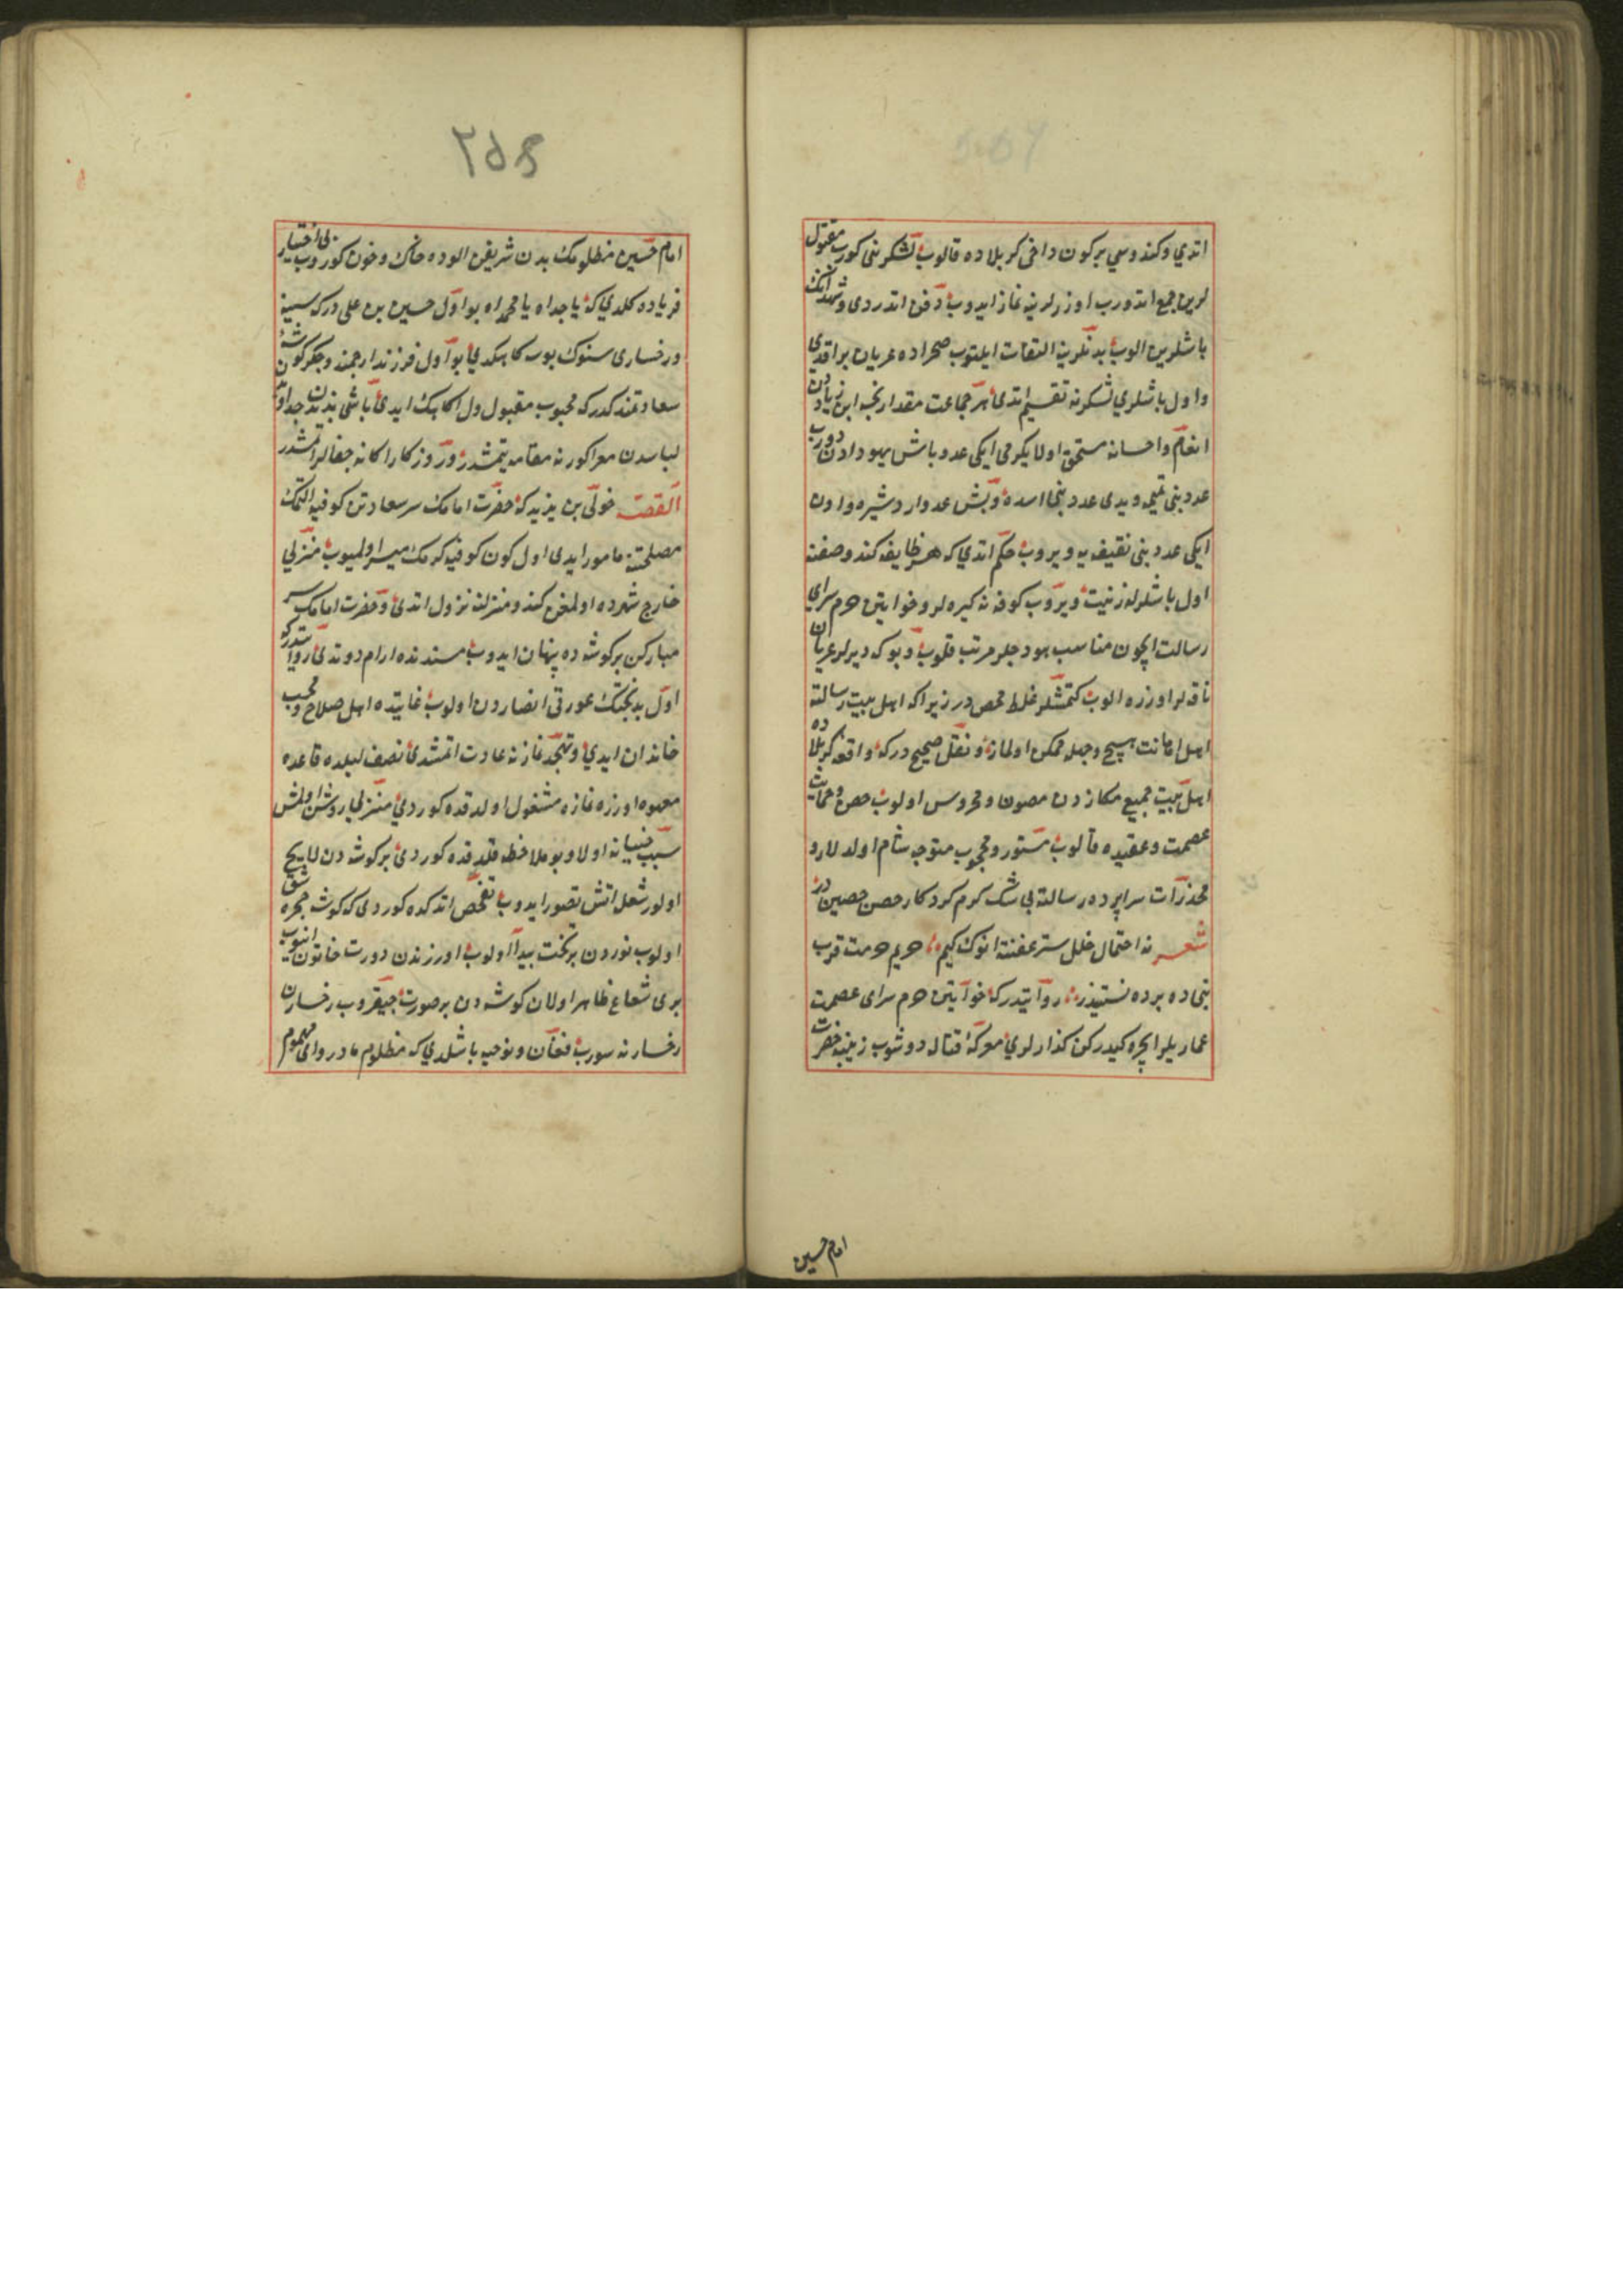 اتدي وكندوسي بركون داخى كربلاده قالوب لشكرينى كورب مقتول
لرين جمع اتدورب اوزرلرينه نماز ايدوب دفن اتدردى وشهدانك
باشلرين الوب بدنلرينه التفات ايلميوب صحراده عريان براقدي
واول باشلري لشكرنه تقسيم اتدى هر جماعت مقدارنجه ابن زياددن
انعام واحسانه مستحق اولا يكرمى ايكى عدد باش يهوداون دورت
عدد بنى تميمه ويدى عدد بنى اسده وبش عدد اردشيره واون
ايكى عدد بنى ثقيف يه ويروب حكم اتدي كه هر طايفه كندو صفنه
اول باشلرله زينت ويروب كوفه نه كيره لر وخواتين حرم سراي
رسالت ايچون مناسب هودجلر مرتب قلوب وبو كه ديرلر عريان
ناقه لر اوزره الوب كتمشلر غلط محض در زيرا كه اهل بيت رسالته
اهل اهانت هيچ وجهله ممكن اولماز ونقل صحيح دركه واقعه كربلاده
اهل بيت جميع مكارهدن مصون ومحروس اولوب حصن وحمايت
عصمت وعقيده قالوب مستور ومحجوب متوجه شام اولدلار و
مخدرات سراپرده رسالته بى شك كرم كردكار حصن حصين در
شعر نه احتمال خلل ستر عفتنه انوك كيم حريم حرمت قرب
بنى ده پرده نشيندر روايتدركه خواتين حرم سراى عصمت
عماريلر ايچره كيدركن كذارلري معركه قتاله دوشوب زينب حضرت
امام حسين
٢٥٥
امام حسين مظلومك بدن شريفن الوده خاك وخون كوروب بى اختيار
فرياده كلدي كه يا جداه يا محمداه بو اول حسين بن على دركه سينه
ورخسارى سنوك بوسه كاهكدي بو اول فرزند ارجمند وجكركوشه
سعادتمندكدركه محبوب مقبول دل اكاهك ايدى باشى بدنندن جدا وتنى
لباسدن معرا كورنه مقامه يتمشدر وروزكار اكا نه جفالر اتمشدر
القصه خولى بن يزيد كه حضرت امامك سر سعادتن كوفيه التمك
مصلحتنه مامور ايدى اول كون كوفيه كرمك ميسر اولميوب منزلي
خارج شهرده اولمغن كندو منزلنه نزول اتدى وحضرت امامك سر
مباركن بر كوشه ده پنهان ايدوب مسندنده ارام دوتدى روايتدركه
اول بدبختك عورتى انصاردن اولوب غايتده اهل صلاح ومحب
خاندان ايدي وتهجد نمازنه عادت اتمشدى نصف ليلده قاعده
معهوده اوزره نمازه مشغول اولدقده كوردي منزلى روشن اولمش
سبب ضيا نه اولا ديو ملاحظه قلدقده كوردى بر كوشه دن لايح
اولور شعله اتش تصور ايدوب تفحص اتدكده كوردى كه كوشه حجره شق
اولوب نوردن بر تخت پيدا اولوب اوزرندن دورت خاتون اينوب
برى شعاع ظاهر اولان كوشه دن بر صورت چيقروب رخسارن
رخسارنه سورب فغان ونوحيه باشلدي كه مظلوم مادر واى مهموم